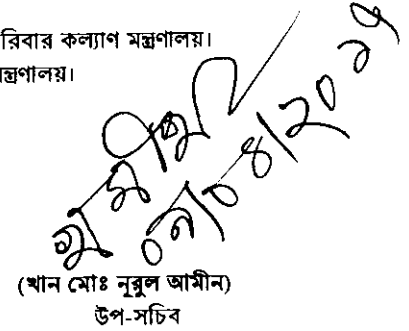 রিবার কল্যাণ মন্ত্রণালয়।
ন্ত্রণালয়।
(খান মোঃ নূরুল আমীন)
উপ-সচিব